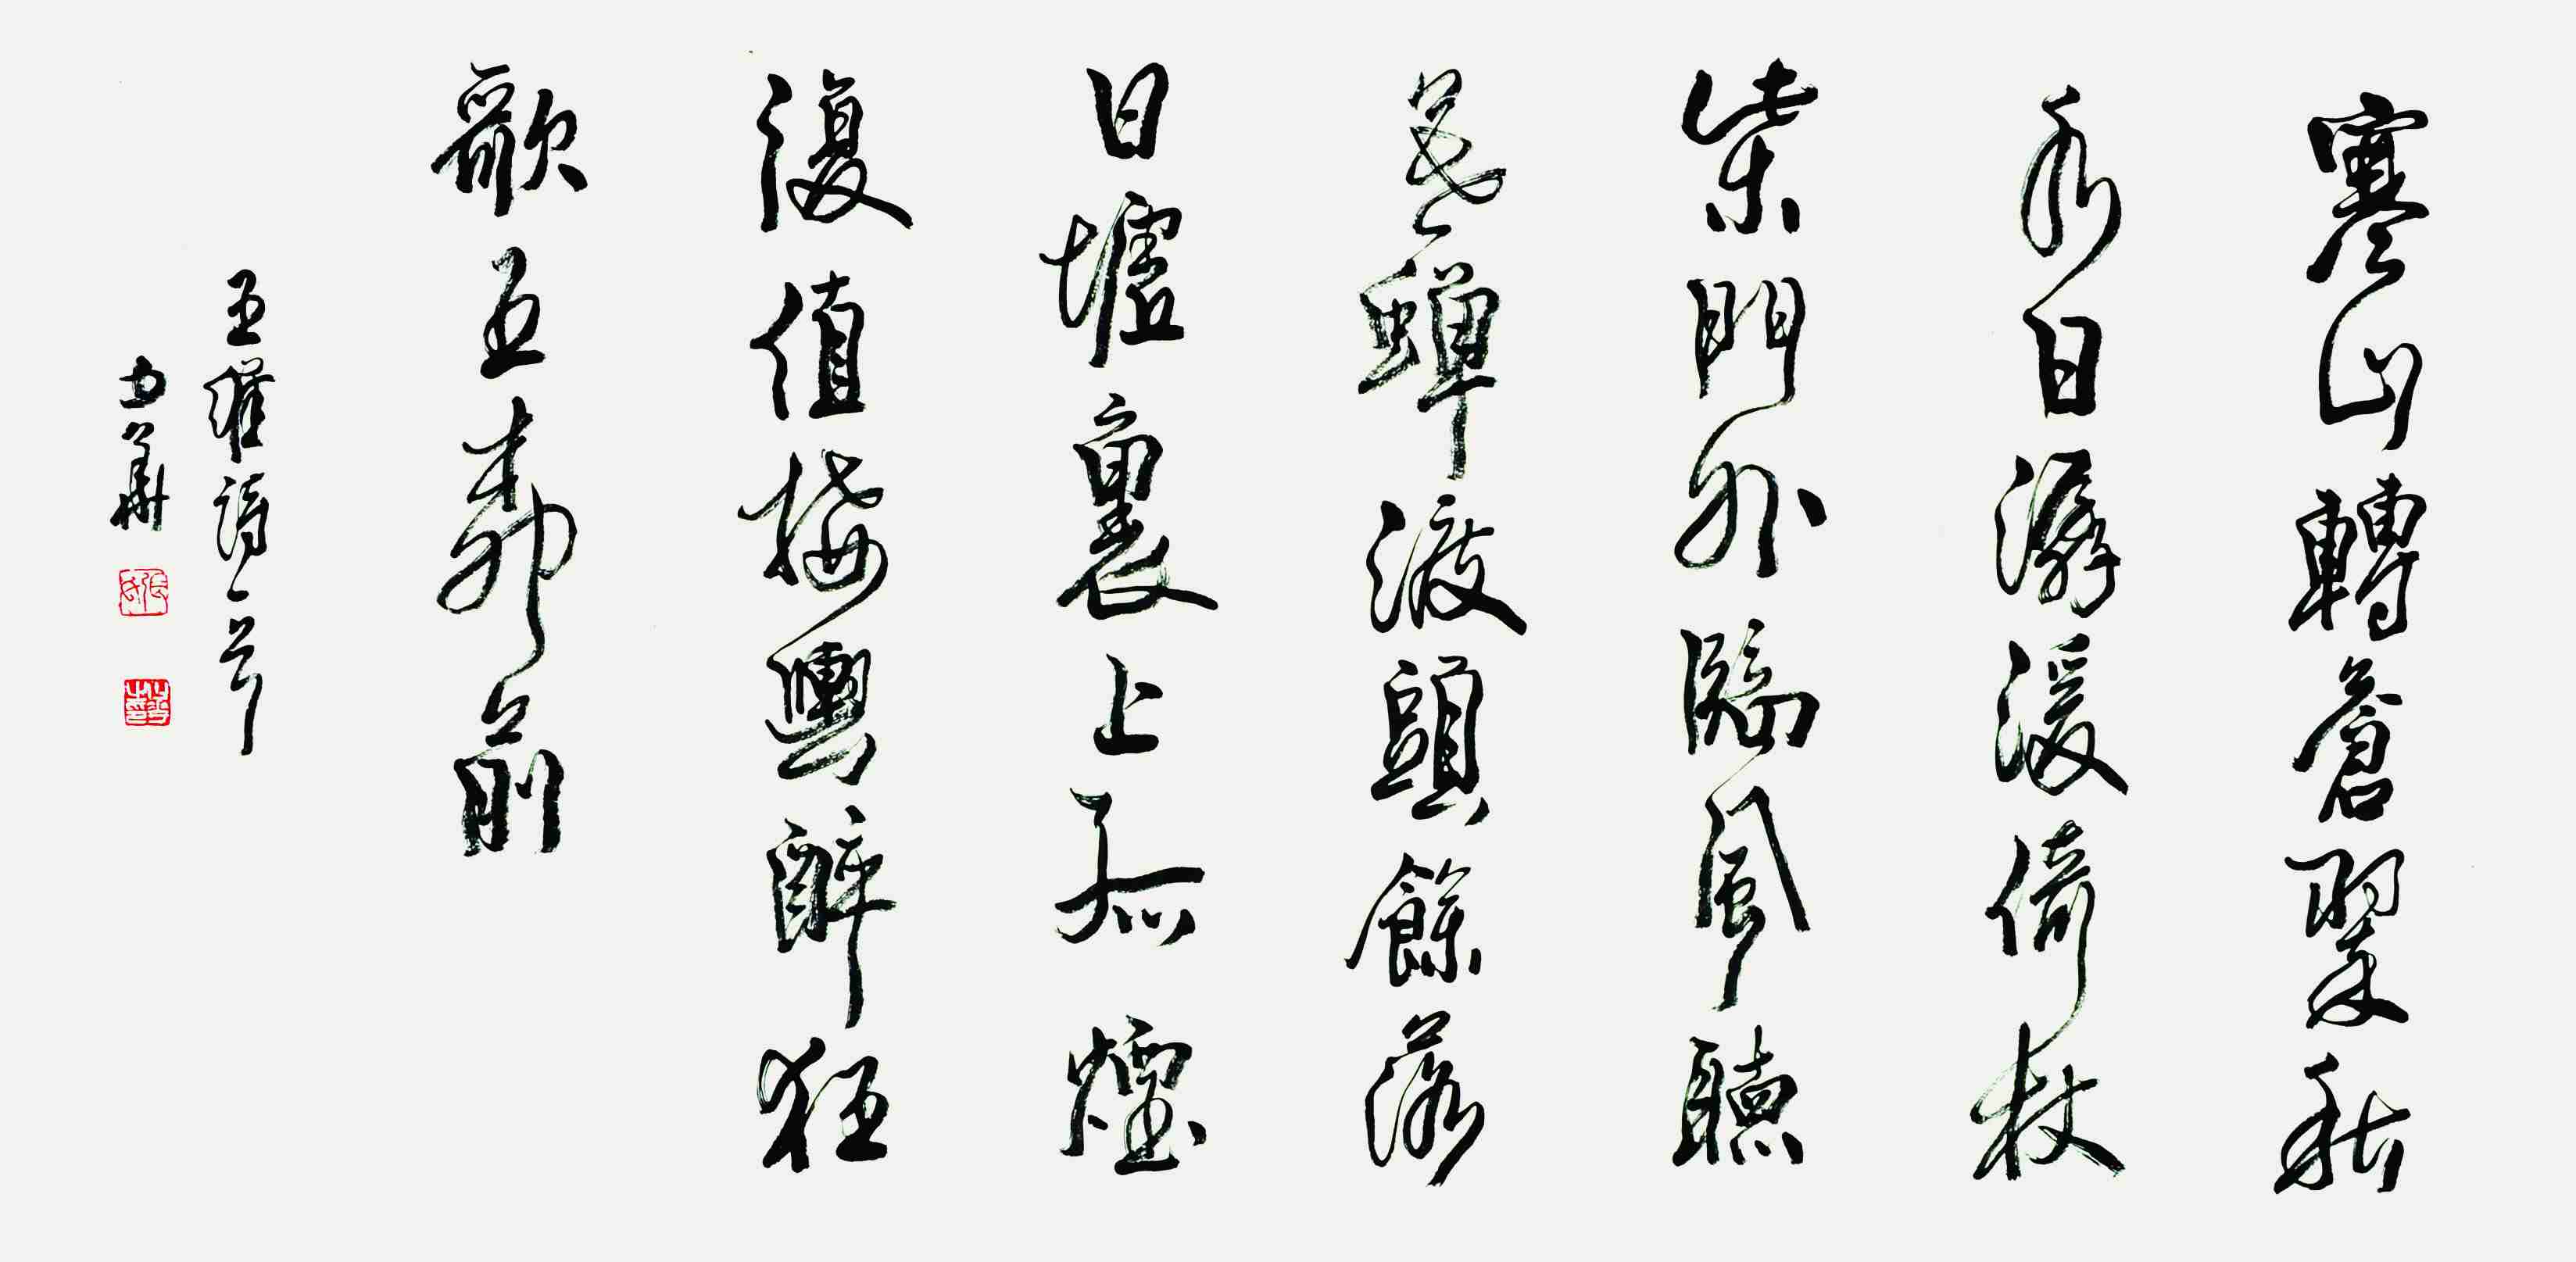 寒山轉蒼翠秋
水日潺湲倚杖
柴門外臨風聽
暮蟬渡頭餘落
日墟裏上孤煙
復值接輿醉狂
歌五柳前
王維詩一首